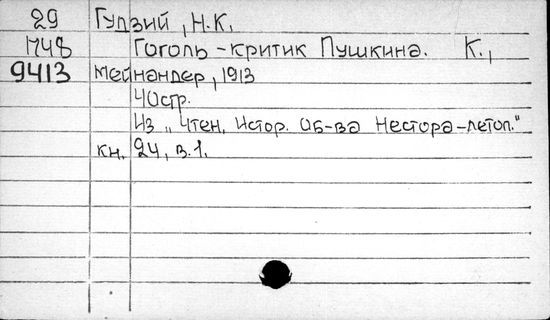 29 Гудзий, Н.К.
1748 Гоголь - критик Пушкина. К.,
9413 Мейнандер, 1913
40стр.
Из „Чтен. Истор. Об-ва Нестора-летоп."
кн. 24, в.1.